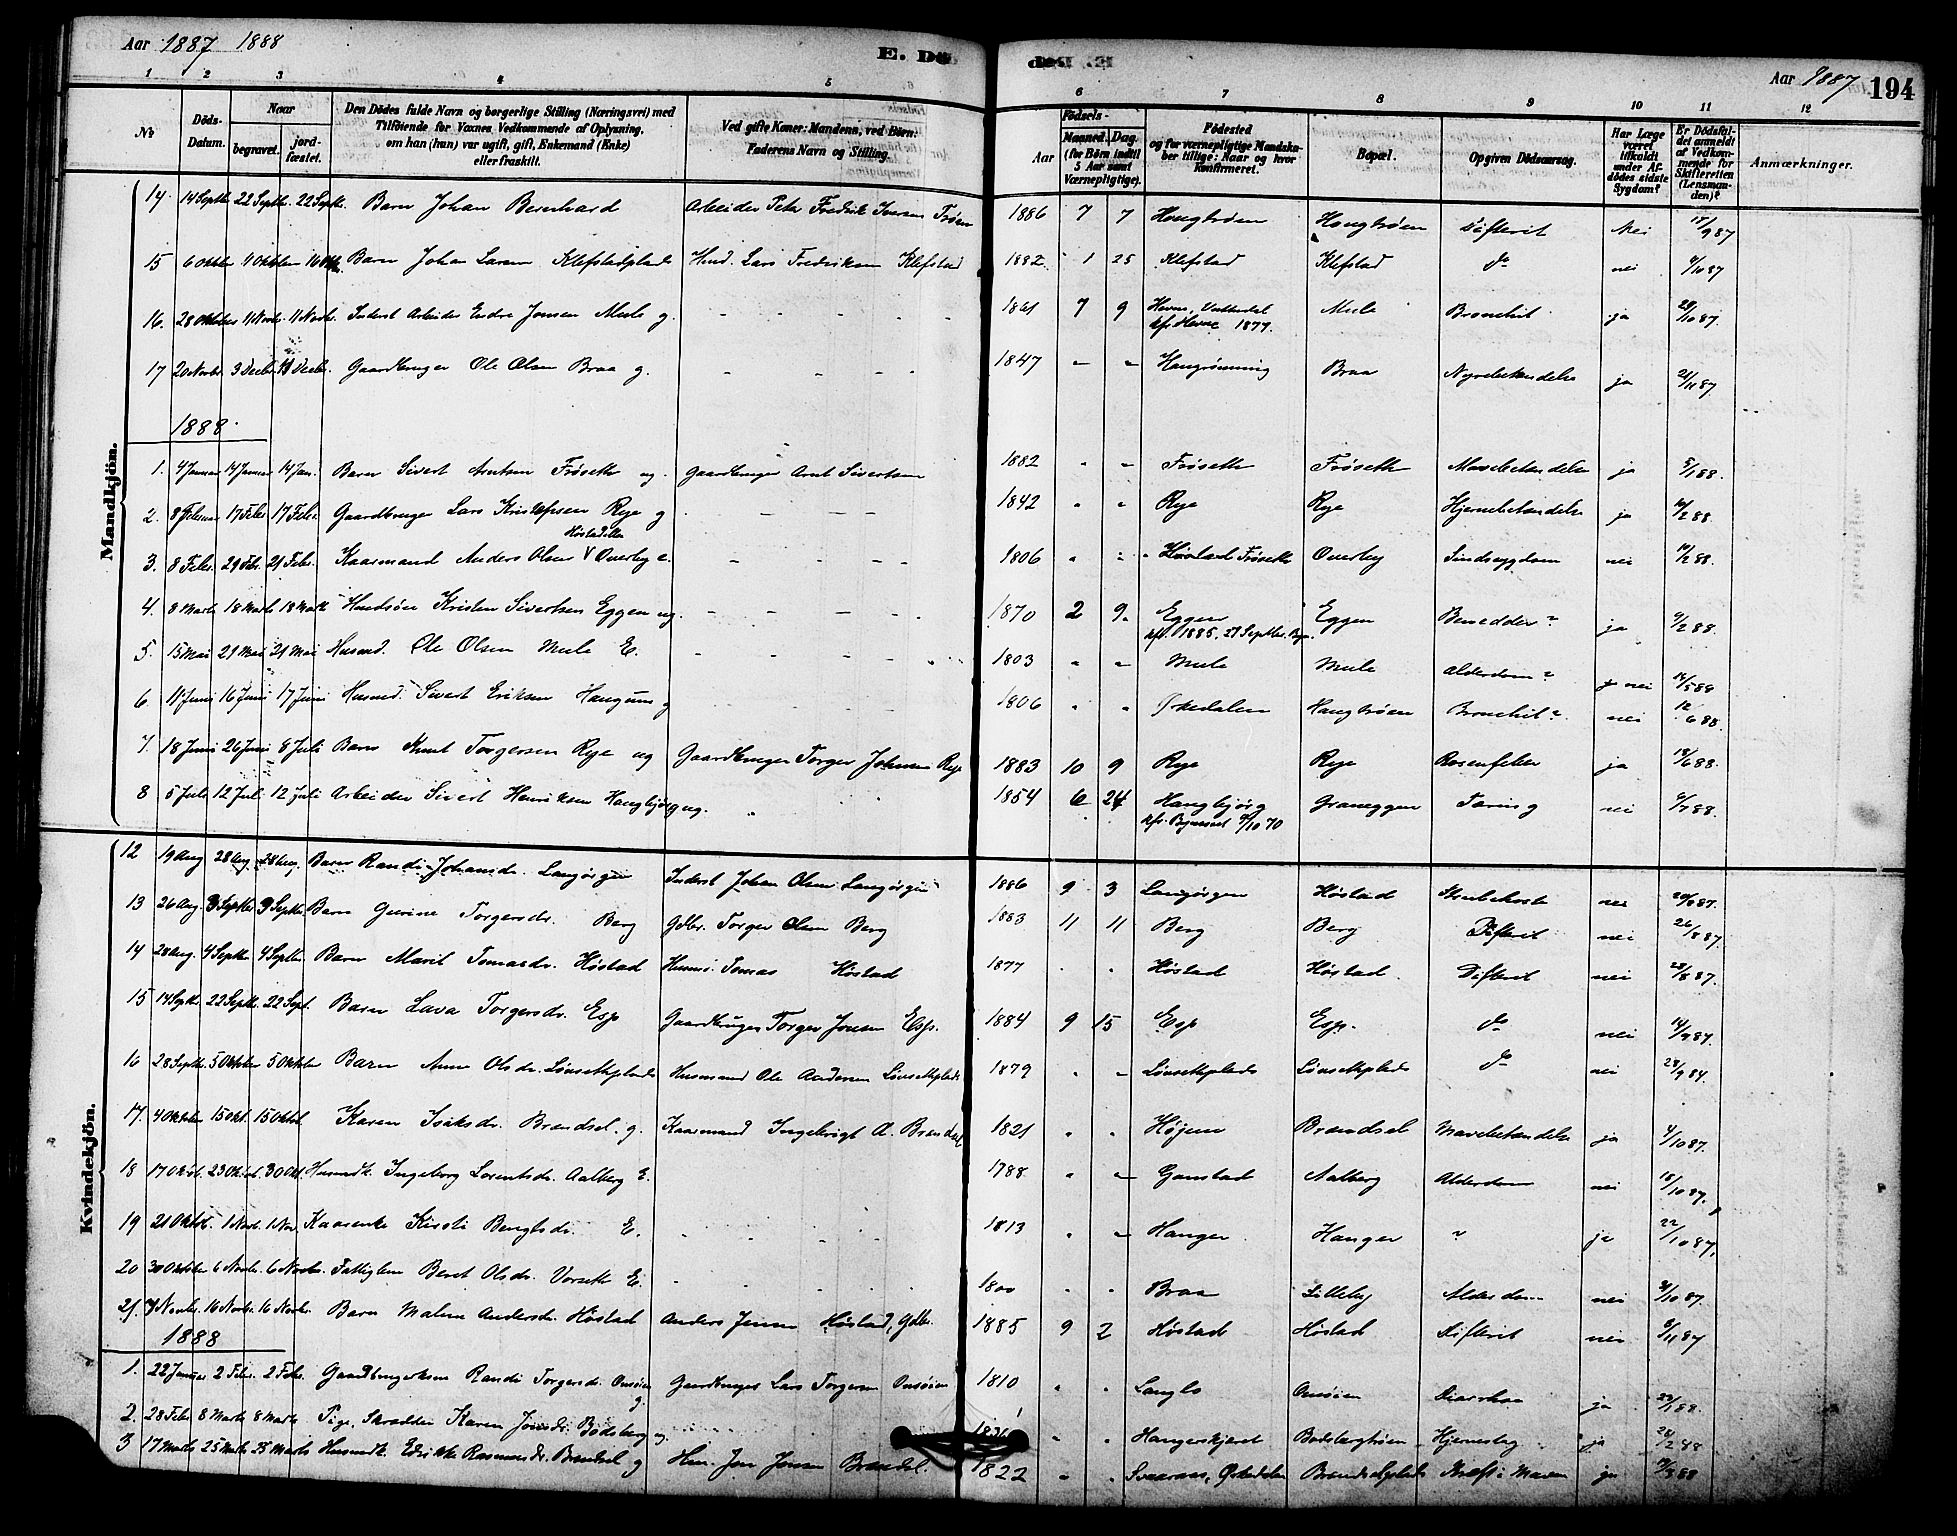 Aar 1887 1888
E. Dö
Aar 1887 194
1 2 3 4 5 6 7 8 9 10 11 12
No
Döds-Datum.
Naar begravet. jord-fæstet.
Den Dödes fulde Navn og borgerlige Stilling (Næringsvei) med Tilföiende for Voxnes Vedkommende af Oplysning, om han (hun) var ugift, gift, Enkemand (Enke) eller fraskilt.
Ved gifte Koner: Mandens, ved Börn: Faderens Navn og Stilling.
Födsels-
Aar
Maaned. Dag.
(for Börn indtil 5 Aar samt Værnepligtige).
Födested og for værnepligtige Mandskaber tillige: Naar og hvor Konfirmeret.
Bopæl.
Opgiven Dödsaarsag.
Har Læge været tilkaldt under Afdödes sidste Sygdom?
Er Dödsfaldet anmeldt af Vedkommende for Skifteretten (Lensmanden)?
Anmærkninger.
Mandkjön.
14. 14 Septbr 22 Septbr. 22 Septbr. Barn Johan Bernhard Arbeider Peter Fredrik Iversen Trøen 1886 7 7 Haugtrøen Haugtrøen Difterit Nei 17/9 87
15 6 Oktober 11 Oktober 16 Oktbr. Barn Johan Larsen Klefstadplads Husmd. Lars Fredriksen Klefstad 1882. 1 25 Klefstad Klefstad do nei 9/10 87
16. 28 Oktober 11 Novbr. 11 Novbr. Inderst Arbeider Endre Jonsen Mule g. - - - - 1861 7 9 Hevne, kfr. Hevne 1877. Mule Bronchit ja 28/10 87.
17 20 Novbr. 3 Decbr. 11 Decbr. Gaardbruger Ole Olsen Braa g. - - - 1847 - - Haugrønning Braa Nyrebetændelse ja 21/11 87
1888.
1. 4 Januar 14 Januar 14 Jan. Barn Sivert Arntsen Frøseth ug. Gaardbruger Arnt Sivertsen 1882 - - Frøseth Frøseth Mavebetændelse ja 5/1 88.
2. 8 Februar 17 Febr. 17 Febr. Gaardbruger Lars Kristofersen Rye g - - - 1842 - - Rye Rye Hjernebetændelse ja 10/2 88.
Høstad eller
3. 8 Febr. 21 Febr. 21 Febr. Kaarmand Anders Olsen V Overby e. - - - 1806 - - Høstad Frøseth Overby Sindssygdom nei 10/2 88.
4. 8 Marts 18 Marts 18 Marts Husmdsøn Kristen Sivertsen Eggen ug. - - - 1870 2 9 Eggen kfr. 1885, 27 Septbr. Bynæs. Eggen ja 9/2 88.
5. 15 Mai 21 Mai 21 Mai Husmd. Ole Olsen Mule E. - - - 1803 - - Mule Mule Alderdom nei 16/5 88
6. 11 Juni 16 Juni 17 Juni Husmd. Sivert Eriksen Haugum g 1806 - - Ørkedalen Haugtrøen Bronchit nei 12/6 88.
7. 18 Juni 26 Juni 8 Juli Barn Knut Torgersen Rye ug Gaardbruger Torger Johnsen Rye 1883 10 9 Rye Rye Rosenfeber ja 18/6 88.
8 5 Juli 12 Juli 12 Juli Arbeider Sivert Henriksen Haugbjørg ug. 1854 6 24 Haugbjørg kfr. Bynesset 9/10 70 Graneggen Tæring nei 9/7 88.
Kvindekjön.
12 19 Aug 28 Aug. 28 Aug. Barn Randi Johansdr. Langørgen Inderst Johan Olsen Langørgen 1886 9 3 Langørgen Høstad Strubehoste nei 20/8 87.
13 26 Aug. 3 Septbr. 9 Septbr. Barn Gurine Torgersdr. Berg Gdbr. Torger Olsen Berg 1883 11 11 Berg Berg Difterit nei 26/8 87.
14 28 Aug. 4 Septbr. 4 Septbr. Barn Marit Tomasdr. Høstad Husm. Tomas Høstad 1877 - - Høstad Høstad Difterit nei 28/8 87.
15 14 Septbr. 22 Septbr. 22 Sept. Barn Lava Torgersdr. Esp Gaardbruger Torger Jonsen Esp. 1884 9 15 Esp Esp. do nei 14/9 87.
16 28 Septbr. 5 Oktober 5 Oktober Barn Ane Olsdr. Lønsethplads Husmand Ole Andersen Lønsethplads 1879 - - Lønsethplads Lønsethplads do nei 28/9 87.
17. 4 Oktober 15 Okt. 15 Oktbr. Karen Isaksdr. Brendsel g. Kaarmand Ingebrigt A. Brendsel 1821 - - Højem Brendsel Mavebetændelse ja 4/10 87.
18 17 Oktbr. 23 Oktbr. 30 Okt. Husmdk. Ingeborg Lorentsdr. Aalberg E. 1788 - - Gaustad Aalberg Alderdom nei 18/10 87.
19 21 Oktbr. 1 Novbr. 1 Nov. Kaarenke Kirsti Bengtsdr. E. 1813 - - Hanger Hanger " ja 22/10 87.
20 30 Oktober 6 Novbr. 6 Novbr. Fattiglem Beret Olsdr. Vorseth E. 1800 - - Braa Lilleby Alderdom nei 31/10 87.
21. 7 Novbr. 16 Novbr. 16 Novbr. Barn Malene Andersdr. Høstad Anders Jensen Høstad, Gdbr. 1885 9 2 Høstad Høstad Difterit nei 8/11 87
1888
1. 22 Januar 2 Febr. 2 Febr. Gaardbrugerkone Randi Torgersdr. Onsøien g. Gaardbruger Lars Torgersen Onsøien 1810 - - Langlo Onsøien Diarrhoe ja 22/1 88.
2. 28 Febr 8 Marts 8 Marts Pige, Skrædder Karen Jonsdr. Bødsberg ug. - - Hangerskjeret Bødsbergtrøen Hjerneslag ja 28/2 88
3 17 Marts 25 Marts 25 Marts Husmdk. Rasmusdr. Brendsel g Husm. Jon Jonsen Brendsel. 1822 - - Svaaraas, Ørkedalen Brendselplads Kræft i Maven ja 19/3 88